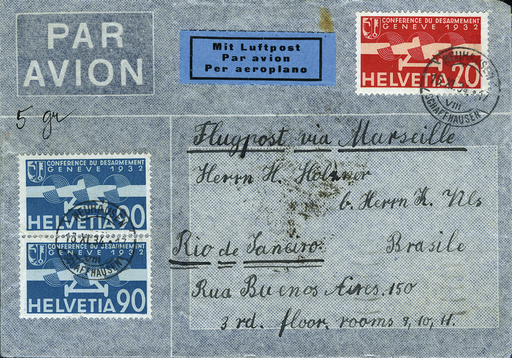 PAR
AVION
Mit Luftpost
Par avion
Per aeroplano
CONFERENCE DU DESARMEMENT
GENEVE 1932
HELVETIA 20
5 gr
Flugpost via Marseille
Herrn H. Holzner
b. Herrn K. Nls
Rio de Janeiro Brasile
Rua Buenos Aires. 150
3 rd. floor, rooms 9, 10, 11.
CONFERENCE DU DESARMEMENT
GENEVE 1932
HELVETIA 90
CONFERENCE DU DESARMEMENT
GENEVE 1932
HELVETIA 90